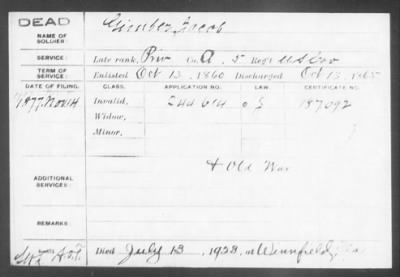 DEAD
NAME OF SOLDIER:
Gimber, Jacob
SERVICE:
Late rank, Priv Co. A, 5 Reg't U.S. Cav
TERM OF SERVICE:
Enlisted Oct 13, 1860 Discharged Oct 13, 1865
DATE OF FILING. CLASS. APPLICATION NO. LAW. CERTIFICATE NO.
1877, Nov 14 Invalid, 244614 187092
Widow,
Minor,
ADDITIONAL SERVICES:
+ Old War
REMARKS:
Died July 13, 1923, at Winnfield, La